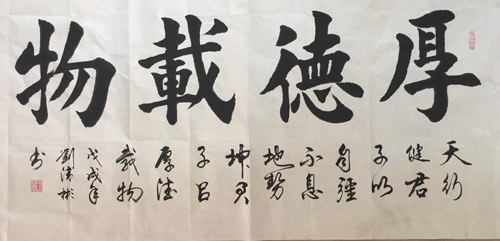 厚德載物
天行
健君
子以
自强
不息
地势
坤君
子以
厚德
载物
戊戌年
劉清彬
书